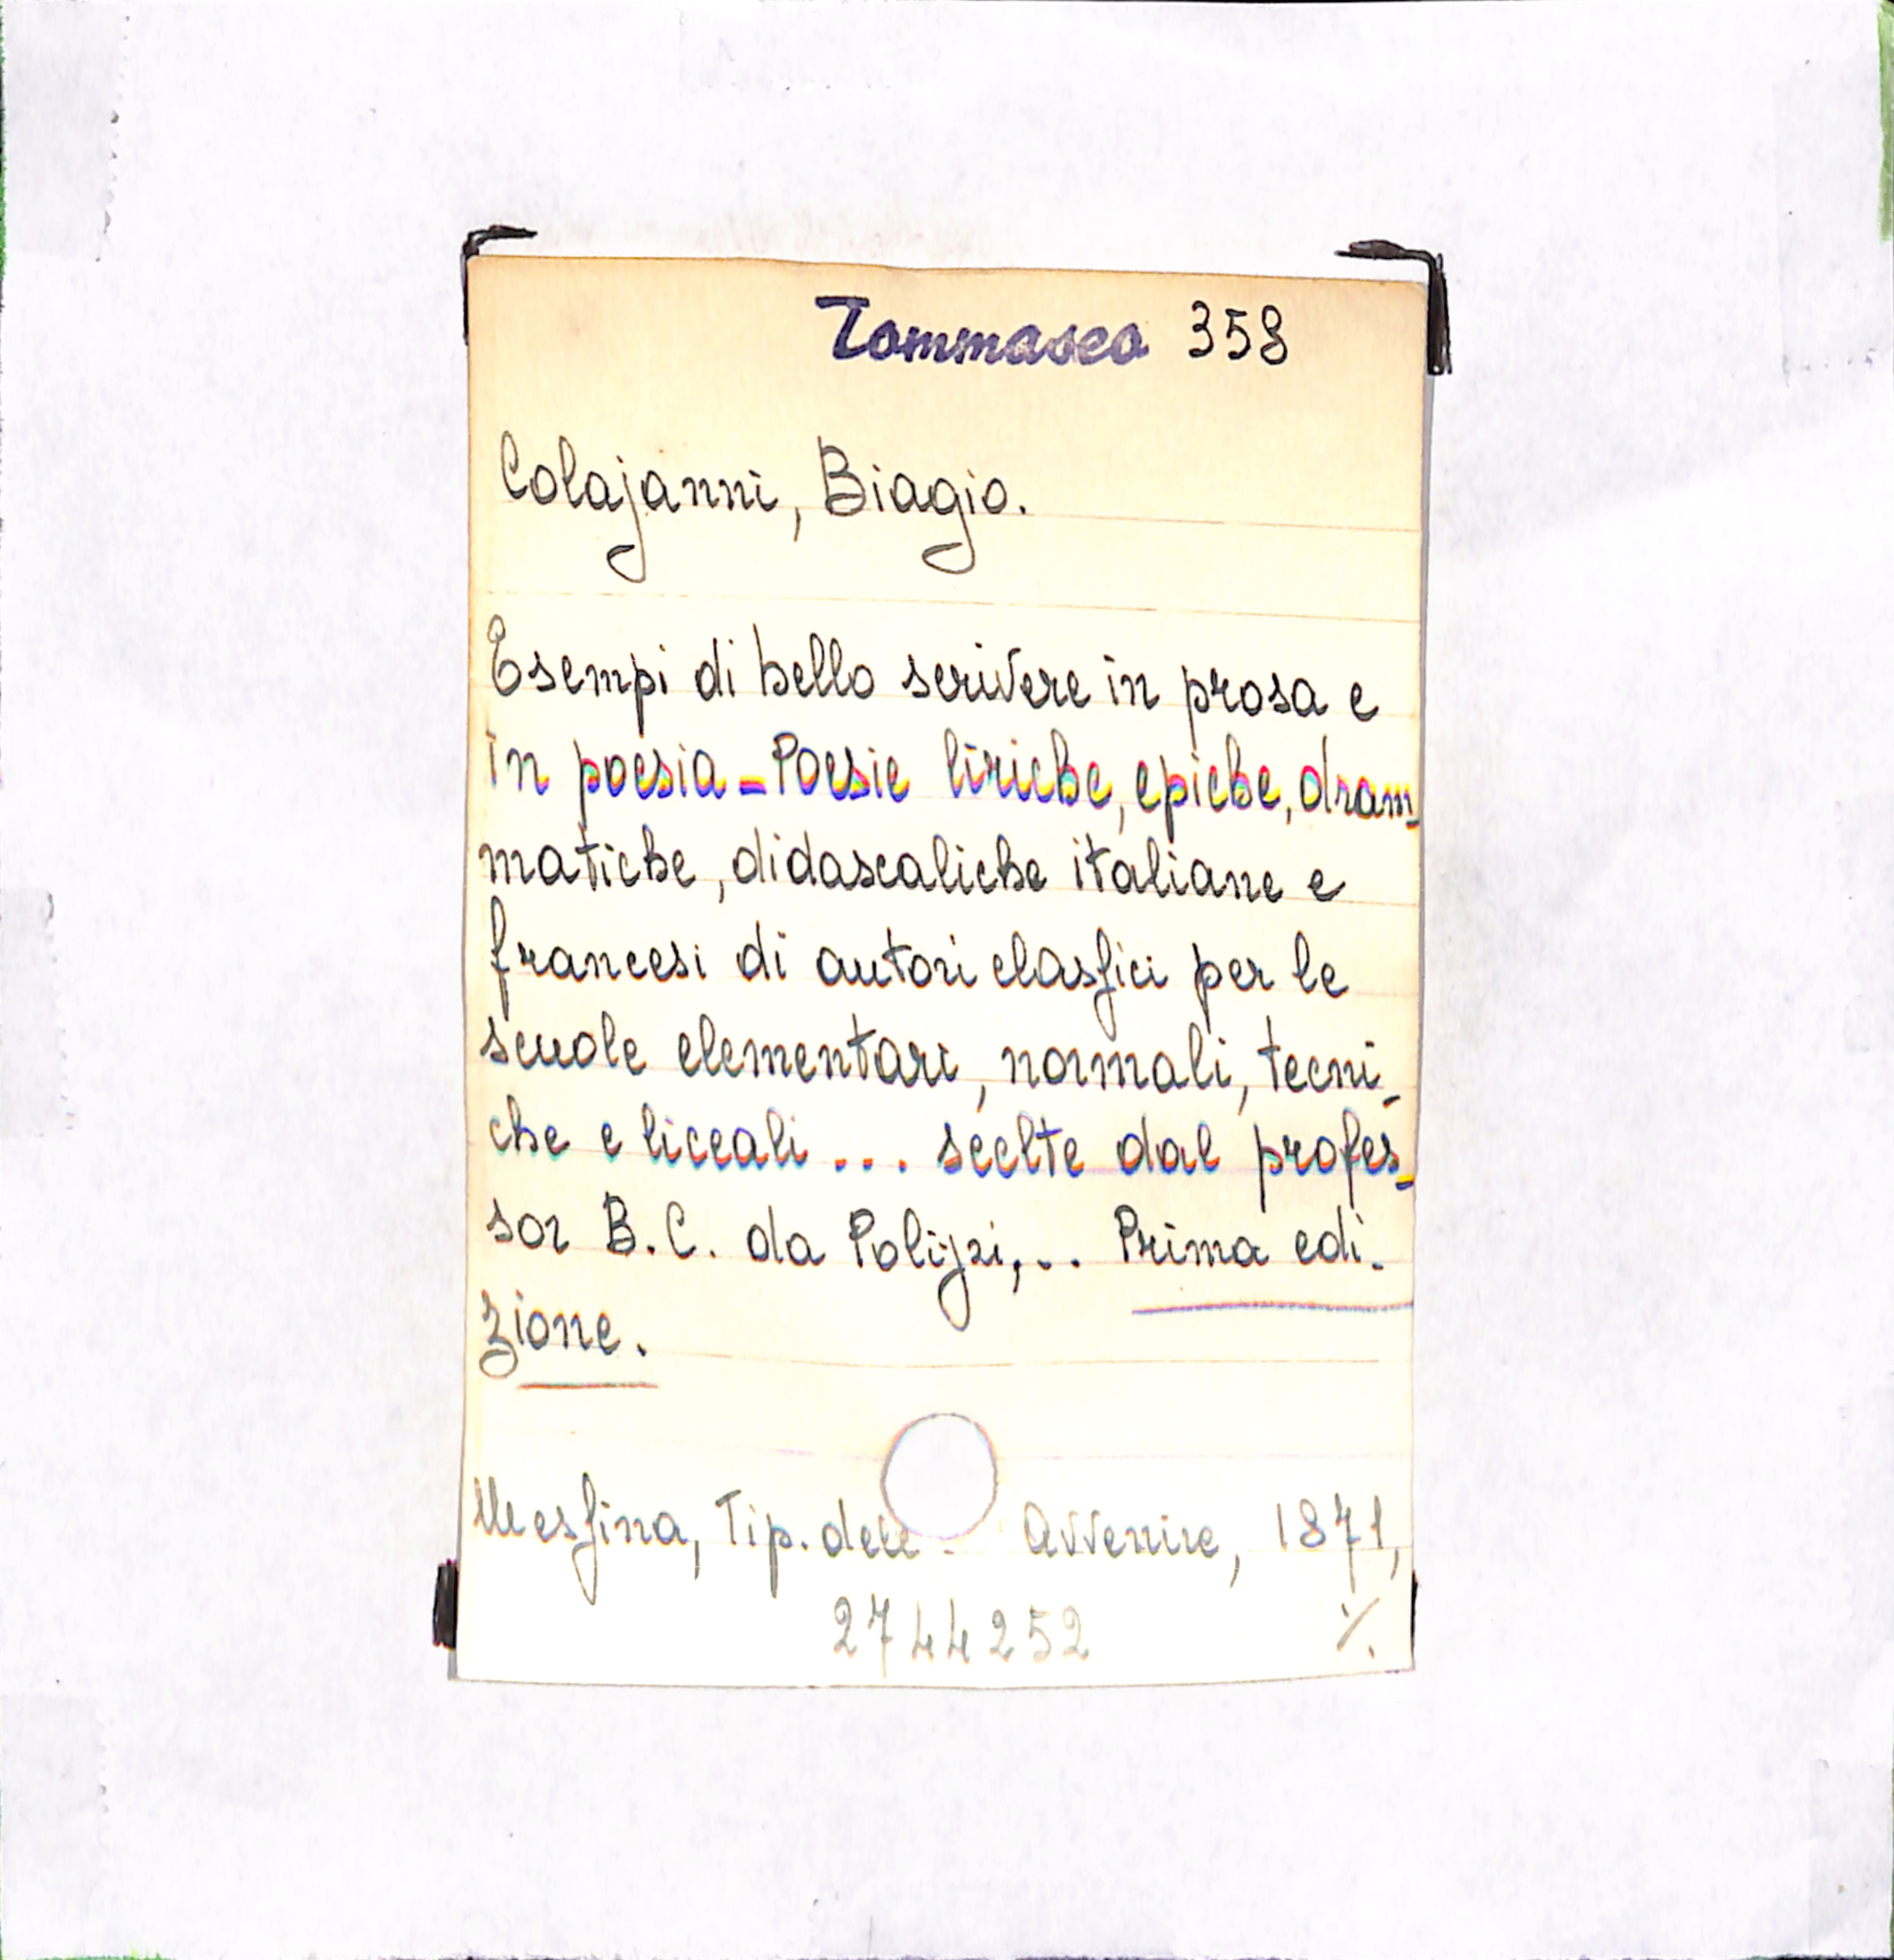 Tommaseo 358
Colajanni, Biagio.
Esempi di bello scrivere in prosa e
in poesia - Poesie liriche, epiche, dram-
matiche, didascaliche italiane e
francesi di autori classici per le
scuole elementari, normali, tecni-
che e liceali ... scelte dal profes-
sor B. C. da Polizzi,... Prima edi-
zione.
Messina, Tip. dell' Avvenire, 1871,
2744252 ./.